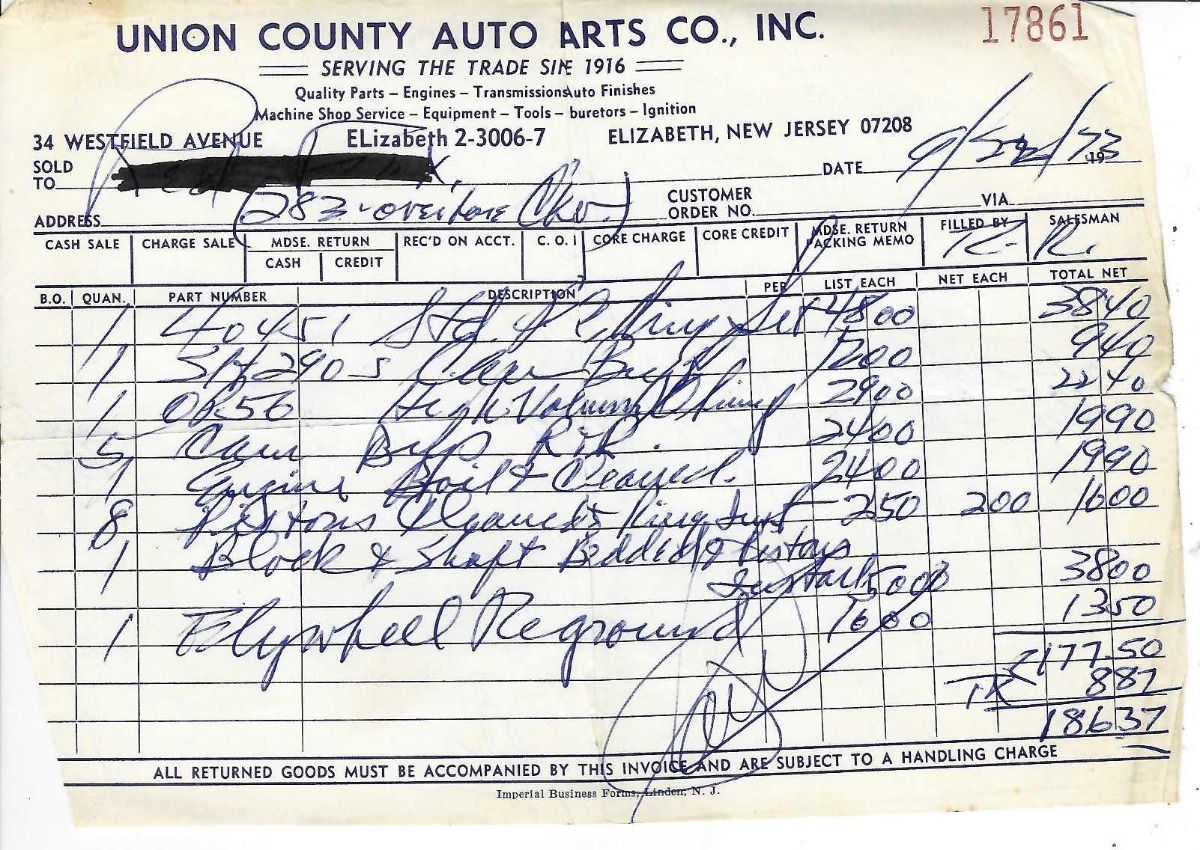 17861
UNION COUNTY AUTO ARTS CO., INC.
SERVING THE TRADE SIN 1916
Quality Parts – Engines – Transmissions Auto Finishes
Machine Shop Service – Equipment – Tools – buretors – Ignition
34 WESTFIELD AVENUE ELizabeth 2-3006-7 ELIZABETH, NEW JERSEY 07208
SOLD TO DATE 9/22/73 19
ADDRESS (283 - overbore Chev.) CUSTOMER ORDER NO. VIA
CASH SALE CHARGE SALE MDSE. RETURN CASH CREDIT REC'D ON ACCT. C. O. CORE CHARGE CORE CREDIT MDSE. RETURN PACKING MEMO FILLED BY SALESMAN
R. R.
B.O. QUAN. PART NUMBER DESCRIPTION PER LIST EACH NET EACH TOTAL NET
1 40451 Std. Ring Set 4800 3840
1 SH290S Cam 1200 940
1 OR56 High Volume 2900 2240
5 Cam R+R. 2400 1990
1 Engine Boil & Cleaned. 2400 1990
8 Pistons 250 200 1600
1 Block & Shaft
Install 5000 3800
1 Flywheel Reground 1600 1350
177.50
TX 887
18637
ALL RETURNED GOODS MUST BE ACCOMPANIED BY THIS INVOICE AND ARE SUBJECT TO A HANDLING CHARGE
Imperial Business Forms, Linden, N. J.